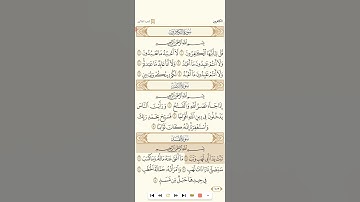 سُورَةُ الكَافِرُونَ
بِسْمِ ٱللَّهِ ٱلرَّحْمَٰنِ ٱلرَّحِيمِ
قُلْ يَٰٓأَيُّهَا ٱلْكَٰفِرُونَ ١ لَآ أَعْبُدُ مَا تَعْبُدُونَ ٢
وَلَآ أَنتُمْ عَٰبِدُونَ مَآ أَعْبُدُ ٣ وَلَآ أَنَا۠ عَابِدٌ مَّا عَبَدتُّمْ ٤
وَلَآ أَنتُمْ عَٰبِدُونَ مَآ أَعْبُدُ ٥ لَكُمْ دِينُكُمْ وَلِيَ دِينِ ٦
سُورَةُ النَّصْرِ
بِسْمِ ٱللَّهِ ٱلرَّحْمَٰنِ ٱلرَّحِيمِ
إِذَا جَآءَ نَصْرُ ٱللَّهِ وَٱلْفَتْحُ ١ وَرَأَيْتَ ٱلنَّاسَ
يَدْخُلُونَ فِي دِينِ ٱللَّهِ أَفْوَاجًا ٢ فَسَبِّحْ بِحَمْدِ رَبِّكَ
وَٱسْتَغْفِرْهُ إِنَّهُۥ كَانَ تَوَّابًۢا ٣
سُورَةُ المَسَدِ
بِسْمِ ٱللَّهِ ٱلرَّحْمَٰنِ ٱلرَّحِيمِ
تَبَّتْ يَدَآ أَبِي لَهَبٍ وَتَبَّ ١ مَآ أَغْنَىٰ عَنْهُ مَالُهُۥ وَمَا كَسَبَ ٢
سَيَصْلَىٰ نَارًا ذَاتَ لَهَبٍ ٣ وَٱمْرَأَتُهُۥ حَمَّالَةَ ٱلْحَطَبِ ٤
فِي جِيدِهَا حَبْلٌ مِّن مَّسَدٍۭ ٥